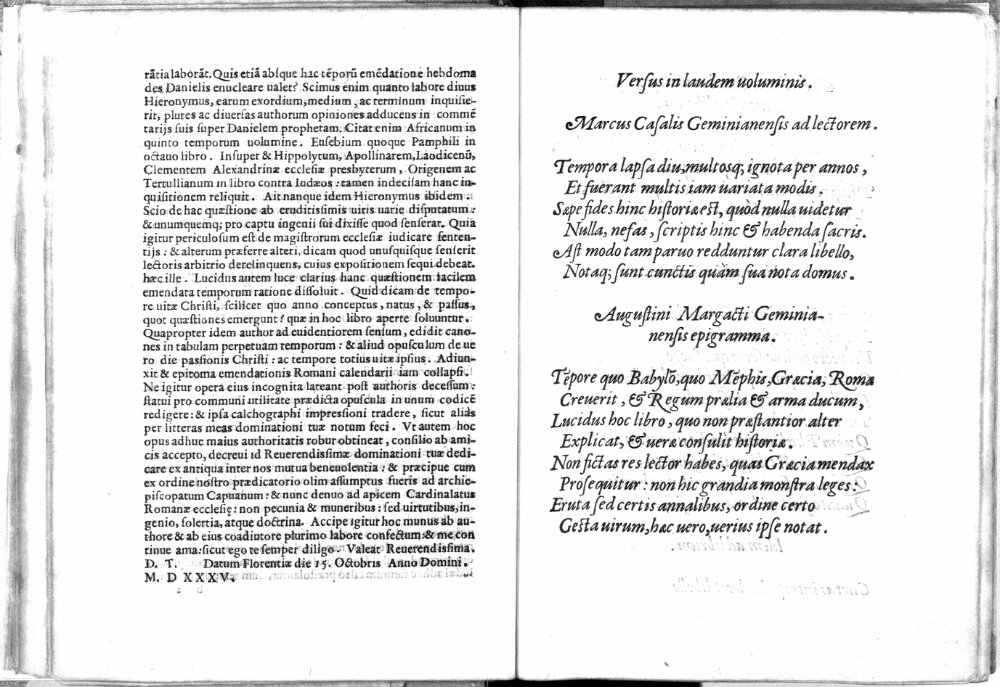 rãtia laborãt. Quis etiã absque hac tẽporũ emẽdatione hebdoma
des Danielis enucleare ualet? Scimus enim quanto labore diuus
Hieronymus, earum exordium, medium, ac terminum inquisie-
rit, plures ac diuersas authorum opiniones adducens in commẽ
tarijs suis super Danielem prophetam. Citat enim Africanum in
quinto temporum uolumine. Eusebium quoque Pamphili in
octauo libro. Insuper & Hippolytum, Apollinarem, Laodicenũ,
Clementem Alexandrinæ ecclesiæ presbyterum, Origenem ac
Tertullianum in libro contra Iudæos: tamen indecisam hanc in-
quisitionem reliquit. Ait nanque idem Hieronymus ibidem.
Scio de hac quæstione ab eruditissimis uiris uarie disputatum:
& unumquemq; pro captu ingenii sui dixisse quod senserat. Quia
igitur periculosum est de magistrorum ecclesiæ iudicare senten-
tijs: & alterum præferre alteri, dicam quod unusquisque senserit
lectoris arbitrio derelinquens, cuius expositionem sequi debeat.
hæc ille. Lucidus autem luce clarius hanc quæstionem facilem
emendara temporum ratione dissoluit. Quid dicam de tempo-
re uitæ Christi, scilicet quo anno conceptus, natus, & passus,
quot quæstiones emergunt? quæ in hoc libro aperte soluuntur.
Quapropter idem author ad euidentiorem sensum, edidit cano-
nes in tabulam perpetuam temporum: & aliud opusculum de ue
ro die passionis Christi: ac tempore totius uitæ ipsius. Adiun-
xit & epitoma emendationis Romani calendarii iam collapsi.
Ne igitur opera eius incognita lateant post authoris decessum:
statui pro communi utilitate prædicta opuscula in unum codicẽ
redigere: & ipsa calchographi impressioni tradere, sicut alias
per litteras meas dominationi tuæ notum feci. Vt autem hoc
opus adhuc maius authoritatis robur obtineat, consilio ab ami-
cis accepto, decreui id Reuerendissimæ dominationi tuæ dedi-
care ex antiqua inter nos mutua beneuolentia: & præcipue cum
ex ordine nostro prædicatorio olim assumptus fueris ad archie-
piscopatum Capuanum: & nunc denuo ad apicem Cardinalatus
Romanæ ecclesię: non pecunia & muneribus: sed uirtutibus, in-
genio, solertia, atque doctrina. Accipe igitur hoc munus ab au-
thore & ab eius coadiutore plurimo labore confectum: & me con
tinue ama: sicut ego te semper diligo. Valeat Reuerendissima.
D. T. Datum Florentiæ die 15. Octobris Anno Domini.
M. D XXXV.
Versus in laudem uoluminis.
Marcus Casalis Geminianensis ad lectorem.
Tempora lapsa diu, multosq; ignota per annos,
Et fuerant multis iam uariata modis.
Sæpe fides hinc historiæ est, quòd nulla uidetur
Nulla, nefas, scriptis hinc & habenda sacris.
Ast modo tam paruo redduntur clara libello,
Notaq; sunt cunctis quàm sua nota domus.
Augustini Margacti Geminia-
nensis epigramma.
Tẽpore quo Babylõ, quo Mẽphis, Græcia, Roma
Creuerit, & Regum prælia & arma ducum,
Lucidus hoc libro, quo non præstantior alter
Explicat, & ueræ consulit historiæ.
Non fictas res lector habes, quas Græcia mendax
Prosequitur: non hic grandia monstra leges:
Eruta sed certis annalibus, ordine certo
Gesta uirum, hac uero, uerius ipse notat.